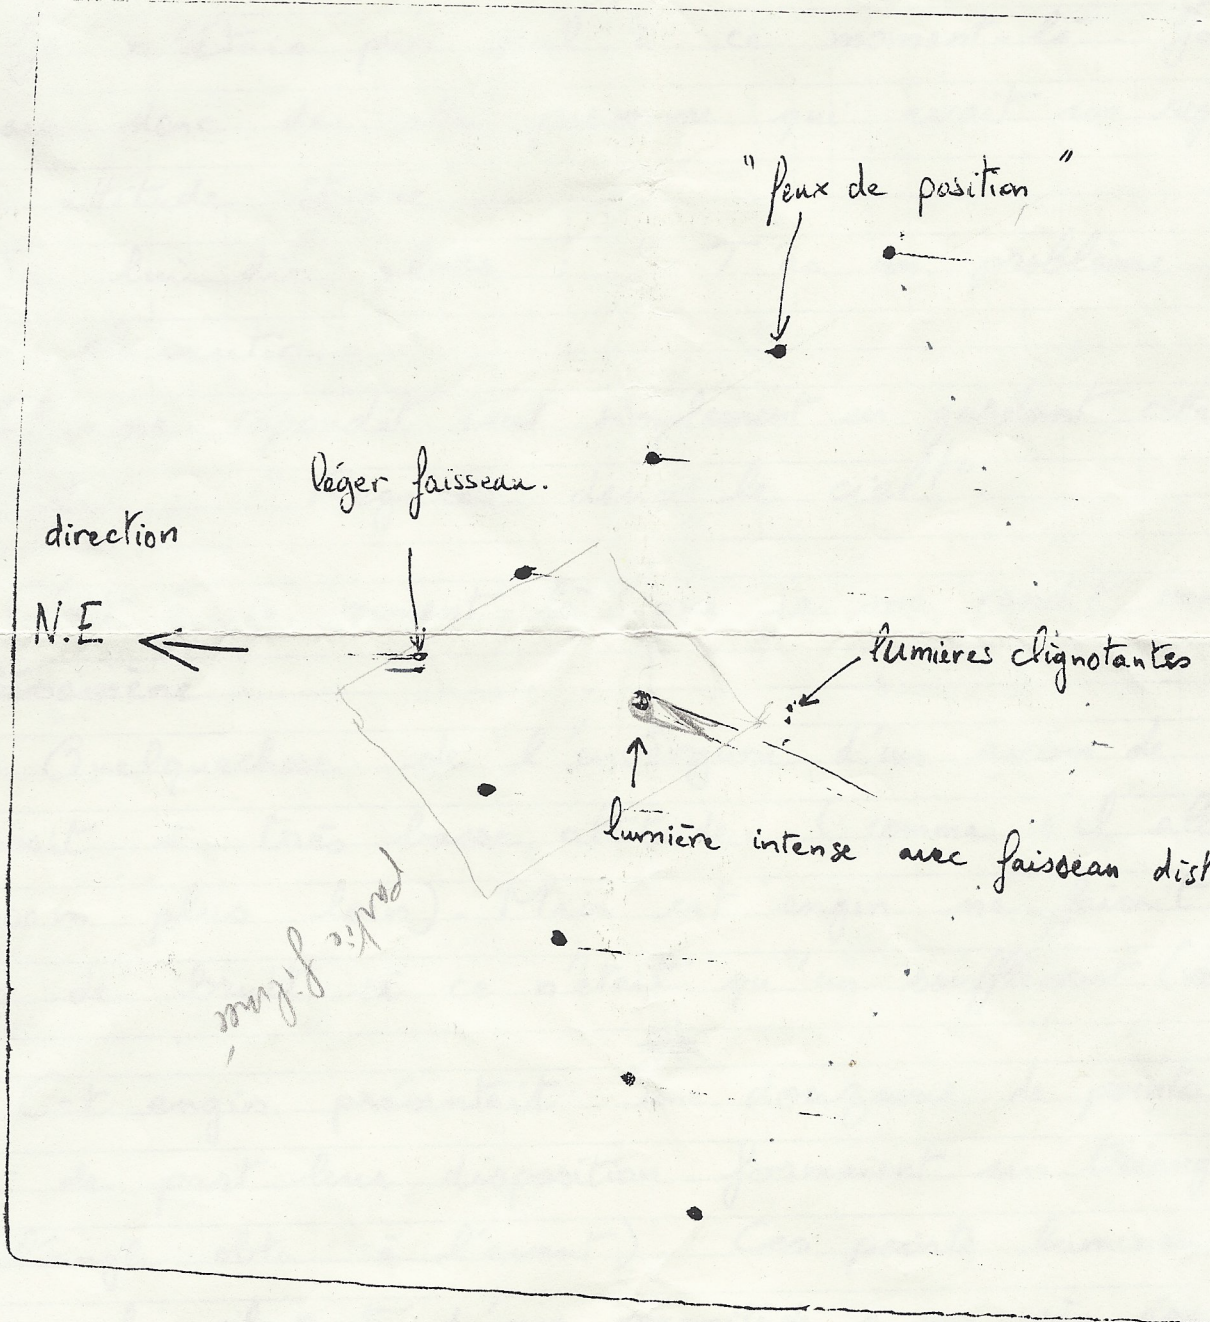 "feux de position"
léger faisseau.
direction
N.E.
lumières clignotantes
lumière intense avec faisseau dist
partie filmée